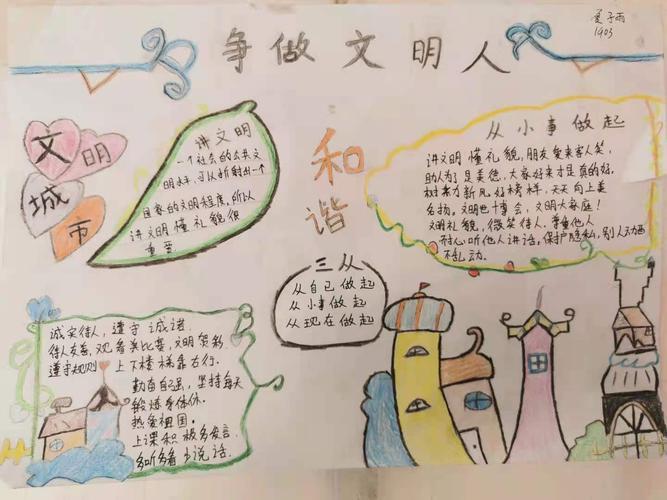 争做文明人
子雨
1903
文明
城市
讲文明
一个社会的公共文
明水平，可以折射出一个
国家的文明程度，所以
讲文明懂礼貌很
重要
和谐
从小事做起
讲文明懂礼貌，朋友爱来客人笑，
助人为了是美德，大家好来才是真的好。
树本力新风好榜样，天天向上美
名扬。文明也十博会，文明大家庭！
文明礼貌，微笑待人。尊重他人
开心听他人讲话，保护隐私，别人
不乱动。
三从
从自己做起
从小事做起
从现在做起
诚实待人，遵守诺
待人友善，观看类比赛，文明贺彩
遵守规则 上下楼梯靠右行。
勤奋自强，坚持每天
锻炼身体休。
热爱祖国。
上课积极多发言。
多听多看少说话。